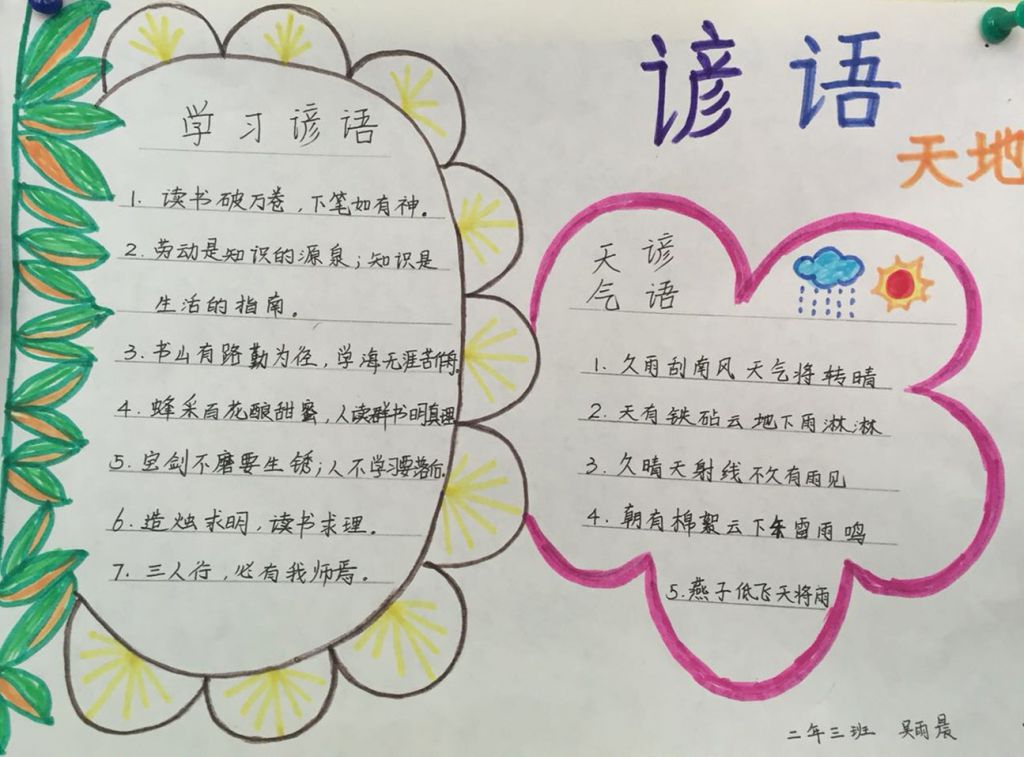 谚语
天地
学习谚语
1. 读书破万卷，下笔如有神。
2. 劳动是知识的源泉；知识是
生活的指南。
3. 书山有路勤为径，学海无涯苦作舟。
4. 蜂采百花酿甜蜜，人读群书明真理
5. 宝剑不磨要生锈；人不学习要落后。
6. 造烛求明，读书求理。
7. 三人行，必有我师焉。
天气
谚语
1. 久雨刮南风 天气将转晴
2. 天有铁砧云 地下雨淋淋
3. 久晴天射线 不久有雨见
4. 朝有棉絮云 下午雷雨鸣
5. 燕子低飞天将雨
二年三班 吴雨晨